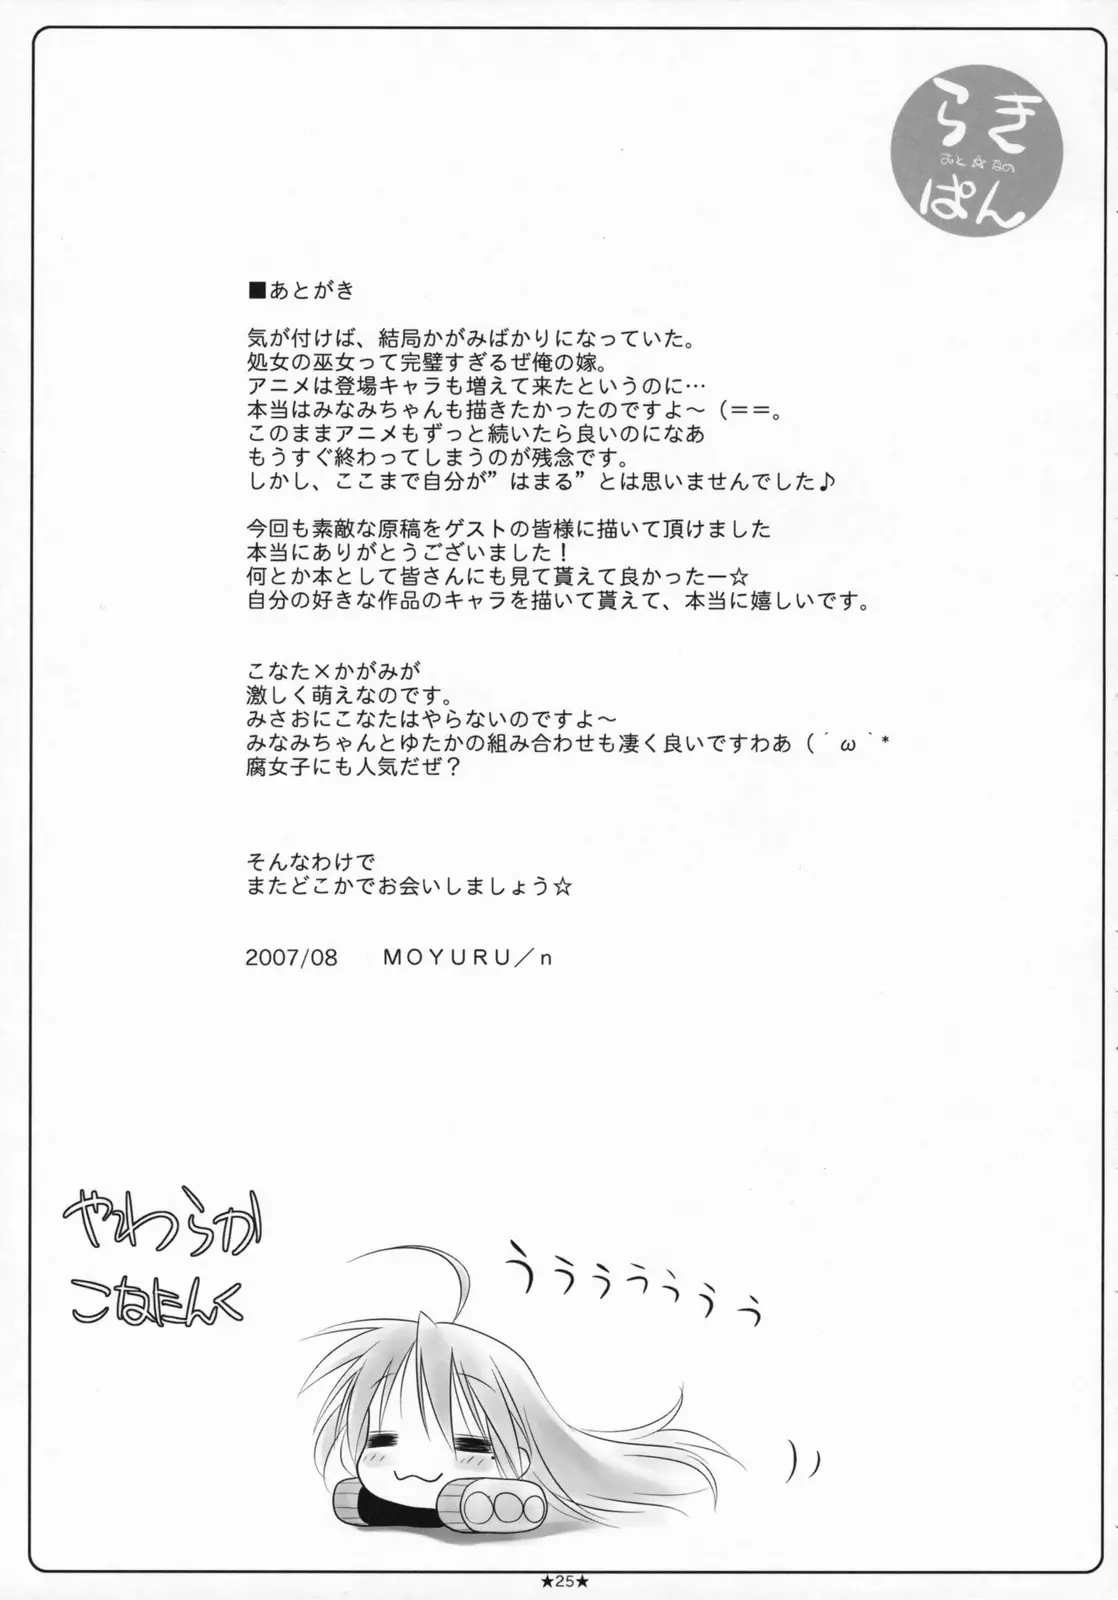 らき
おと☆なの
ぱん
■あとがき
気が付けば、結局かがみばかりになっていた。
処女の巫女って完璧すぎるぜ俺の嫁。
アニメは登場キャラも増えて来たというのに…
本当はみなみちゃんも描きたかったのですよ～（＝＝。
このままアニメもずっと続いたら良いのになあ
もうすぐ終わってしまうのが残念です。
しかし、ここまで自分が”はまる”とは思いませんでした♪
今回も素敵な原稿をゲストの皆様に描いて頂けました
本当にありがとうございました！
何とか本として皆さんにも見て貰えて良かったー☆
自分の好きな作品のキャラを描いて貰えて、本当に嬉しいです。
こなた×かがみが
激しく萌えなのです。
みさおにこなたはやらないのですよ～
みなみちゃんとゆたかの組み合わせも凄く良いですわあ（´ω｀*
腐女子にも人気だぜ？
そんなわけで
またどこかでお会いしましょう☆
2007/08　ＭＯＹＵＲＵ／ｎ
やわらか
こなたんく
うぅぅぅぅぅぅ
★25★